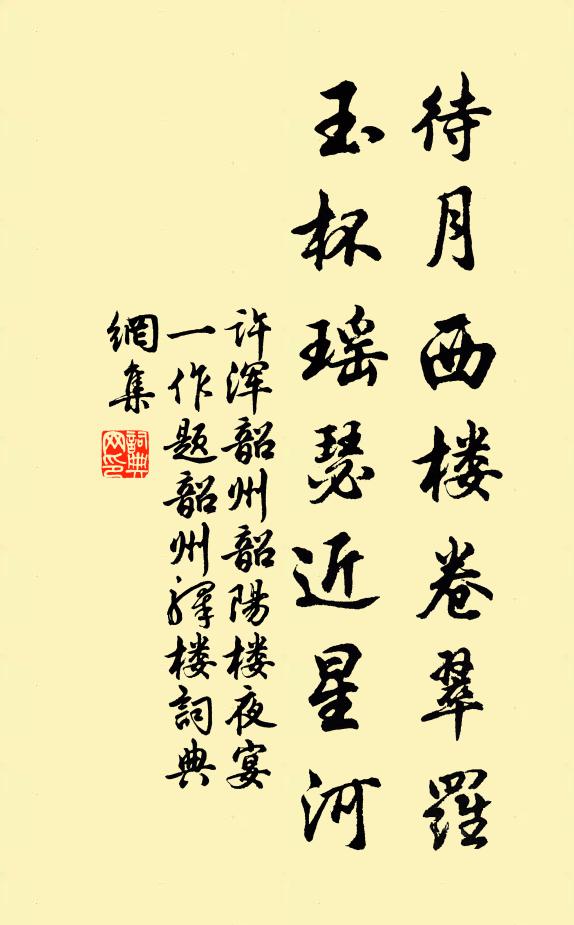 待月西楼卷翠羅
玉杯瑶瑟近星河
许浑韶州韶陽楼夜宴
一作题韶州驛楼詞典
網集
詞典
网印